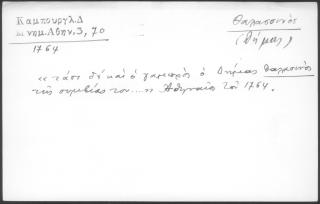 Καμπούρογλ. Δ
μνημ. Αθην. 3, 70
1764
Θαλασσινός
(Θήμας)
«τάσι δύ καί ὁ γαμπρός ὁ Δήμας Θαλασινός
τῆς συμβίας του...» Ἀθηναῖος τοῦ 1764.